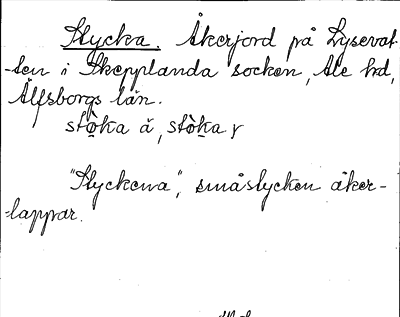 Stycka. Åkerjord på Lysevat-
-ten i Skepplanda socken, Ale hd,
Älfsborgs län.
stò̤ka ă, stò̤ka r
"Styckena", småstycken åker-
-lappar.